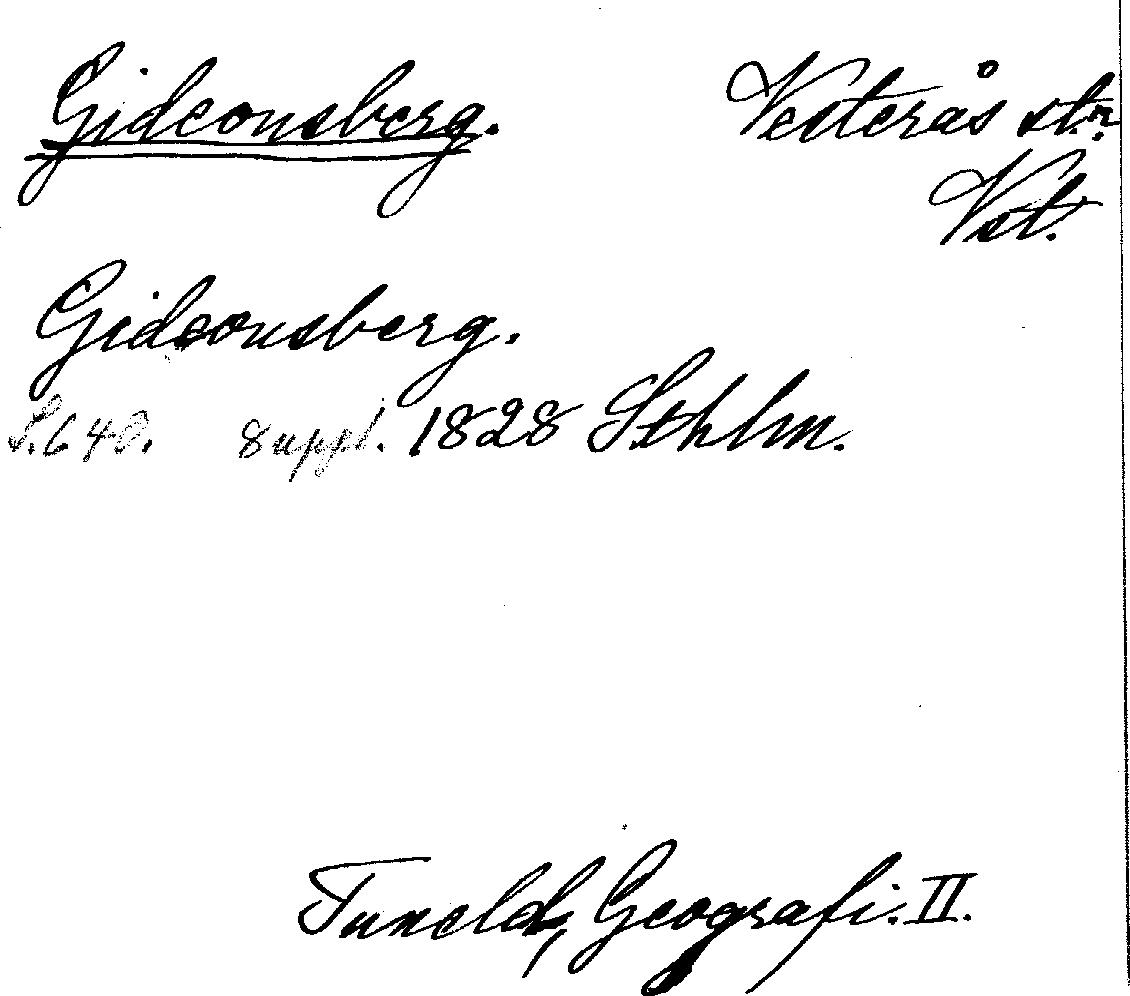 Gideonsberg. Vesterås stn.
Vst.
Gideonsberg.
S. 640. 8 uppl. 1828 Sthlm.
Tuneld, Geografi. II.